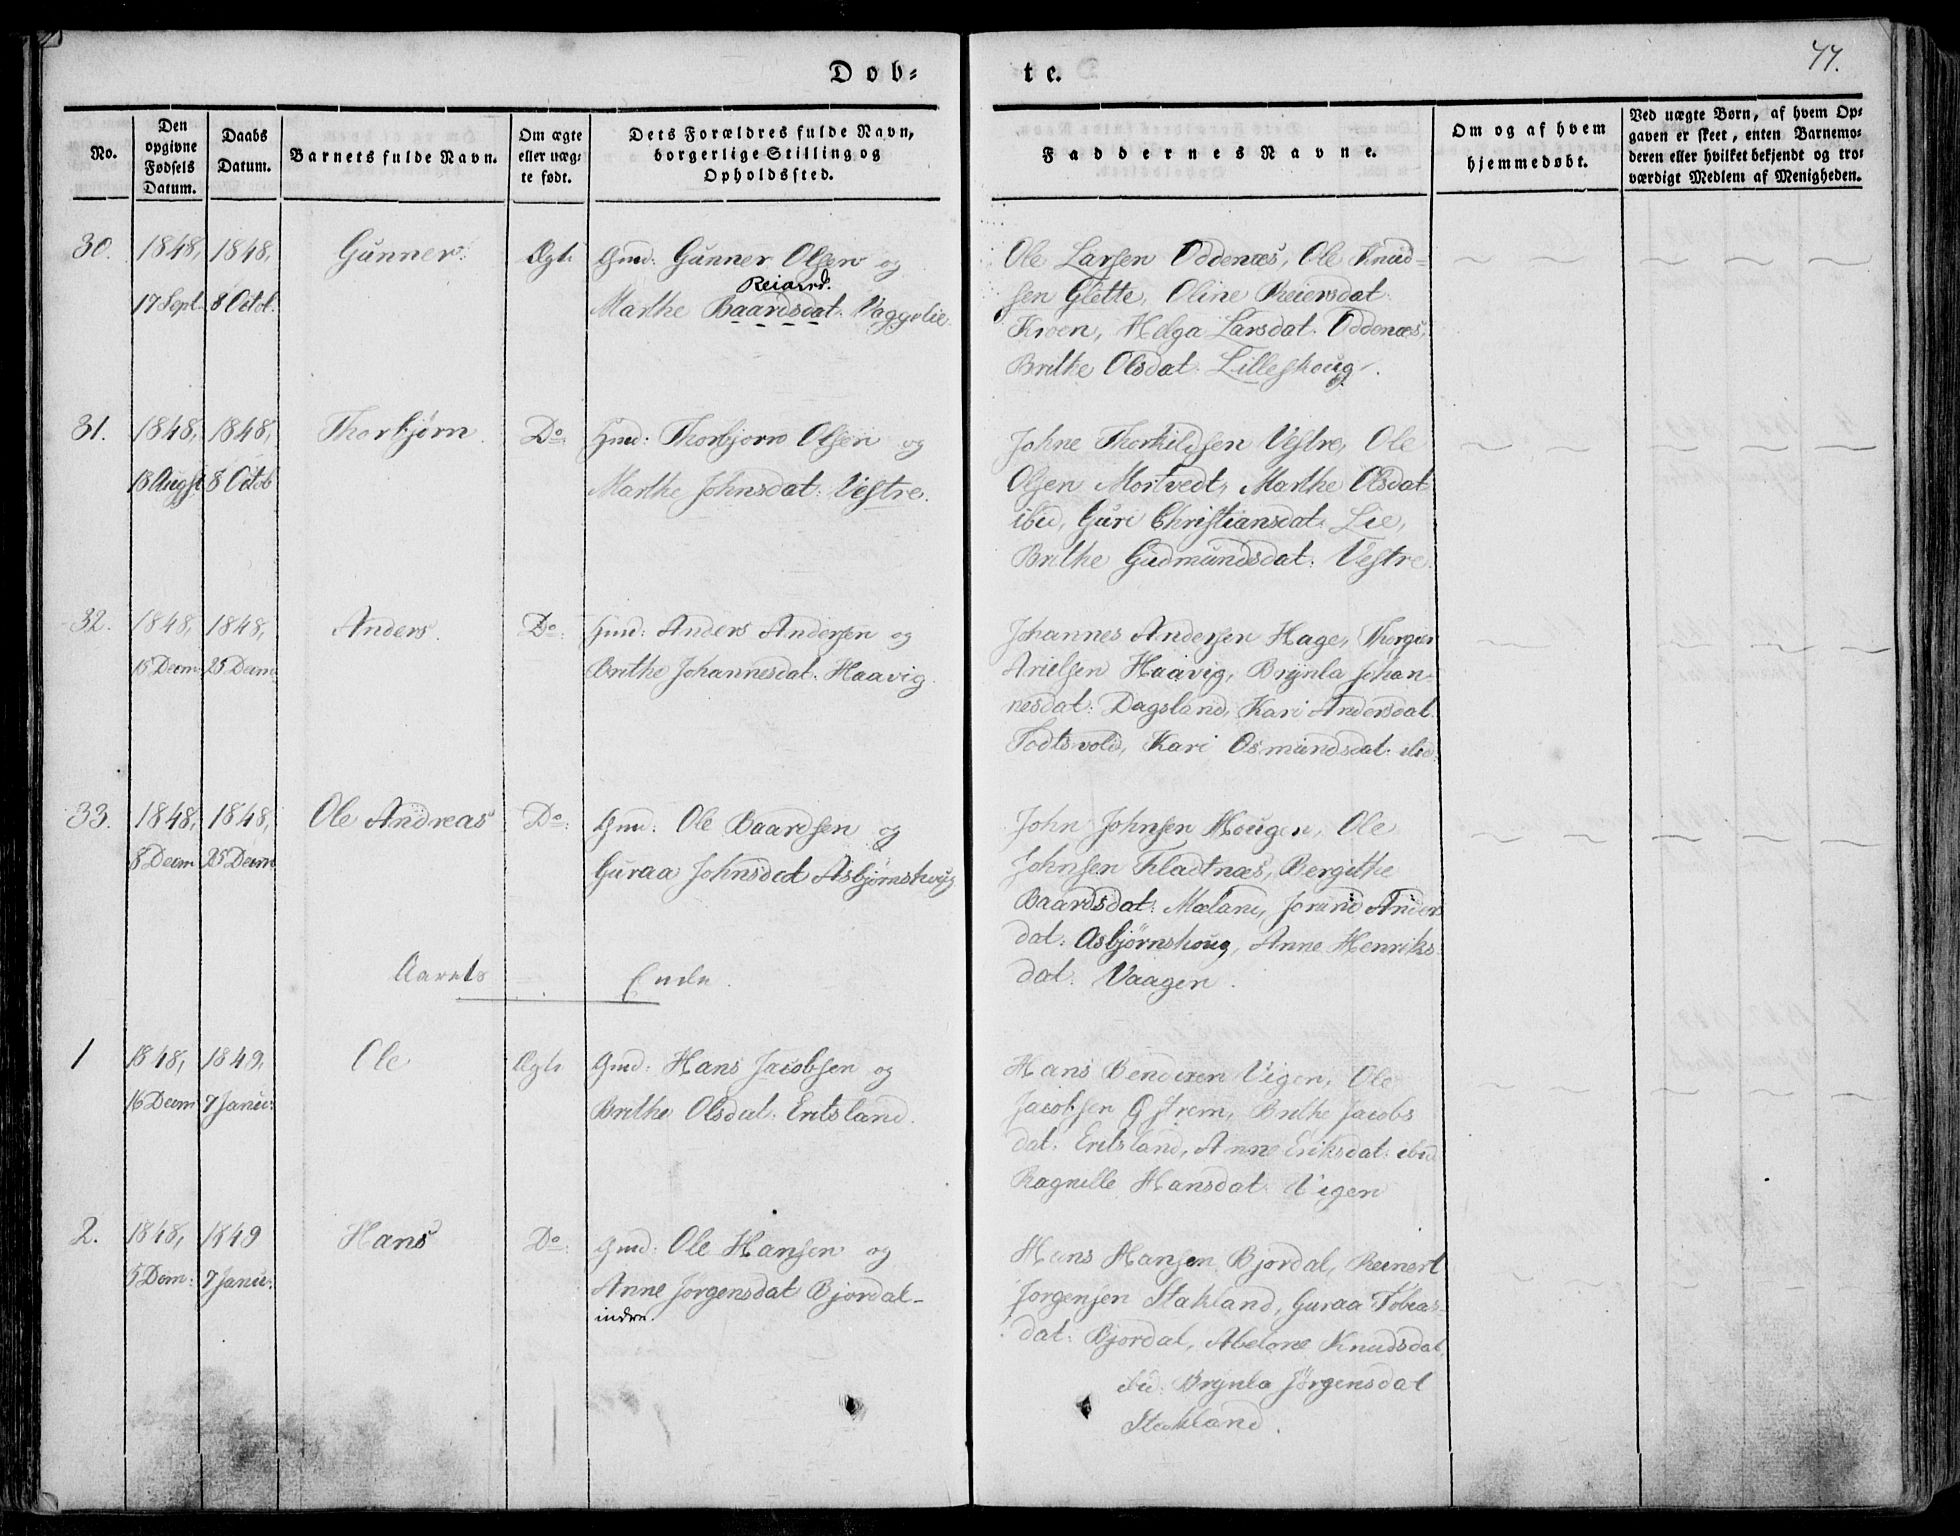 Døb=
te.
77.
No.
Den
opgivne
Fødsels
Datum.
Daabs
Datum.
Barnets fulde Navn.
Om ægte
eller uæg=
te født.
Dets Forældres fulde Navn,
borgerlige Stilling og
Opholdssted.
Faddernes Navne.
Om og af hvem
hjemmedøbt.
Ved uægte Børn, af hvem Op=
gaven er skeet, enten Barnemo=
deren eller hvilket bekjendt og tro=
værdigt Medlem af Menigheden.
30.
1848,
17 Sept.
1848,
8 Octob.
Gunner.
Ægte
Gmd: Gunner Olsen og
Reiard.
Marthe Baardsdat. Vaggelie
Ole Larsen Oddenæs, Ole Knud-
sen Glette, Oline Reiersdat:
Kroen, Helga Larsdat. Oddenæs,
Brithe Olsdat. Lilleskoug.
31.
1848,
18 August
1848,
8 Octob
Thorbjørn
Do:
Gmd: Thorbjorn Olsen og
Marthe Johnsdat: Vestre.
Johne Thorkildsen Vestre, Ole
Olsen Mortvedt, Marthe Olsdat
ibid, Guri Christiansdat: Lie,
Brithe Gudmundsdat: Vestre.
32.
1848,
15 Decm
1848,
25 Decm
Anders.
Do:
Gmd: Anders Andersen og
Brithe Johannesdat. Haavig.
Johannes Andersen Hage, Thorgier
Arielsen Haavig, Brynla Johan-
nesdat: Dagsland, Kari Andersdat.
Todtsvold, Kari Osmundsdat: ibid.
33.
1848,
8 Decm
1848,
25 Decm
Ole Andreas
Do:
Gmd: Ole Baardsen og
Guraa Johnsdat Asbjørnshoug
John Johnsen Hougen, Ole
Johnsen Fladtnæs, Bergithe
Baardsdat: Mæland, Jorund Anders
dat: Asbjørnshoug, Anne Henriks
dat: Vaagen.
Aarets Ende.
1
1848,
16 Decm
1849,
7 Janu:
Ole
Ægte
Gmd: Hans Jacobsen og
Brithe Olsdat: Eritsland.
Hans Bendixen Vigen, Ole
Jacobsen Østrem, Brithe Jacobs
dat: Eritsland, Anne Eriksdat: ibid
Ragnille Hansdat: Vigen
2.
1848,
5 Decm:
1849
7 Janu:
Hans
Do:
Gmd: Ole Hansen og
Anne Jørgensdat Bjordal-
indre.
Hans Hansen Bjordal, Reinert
Jorgensen Stakland, Guraa Tobias-
dat: Bjordal, Abelone Knudsdat,
ibid: Brynla Jørgensdat
Stakland.